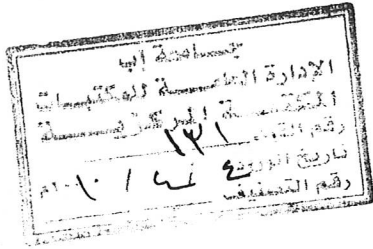 جامعة إب
الإدارة العامة للمكتبات
المكتبة المركزية
رقم القيد ١٣١
تاريخ الورود
رقم التصنيف